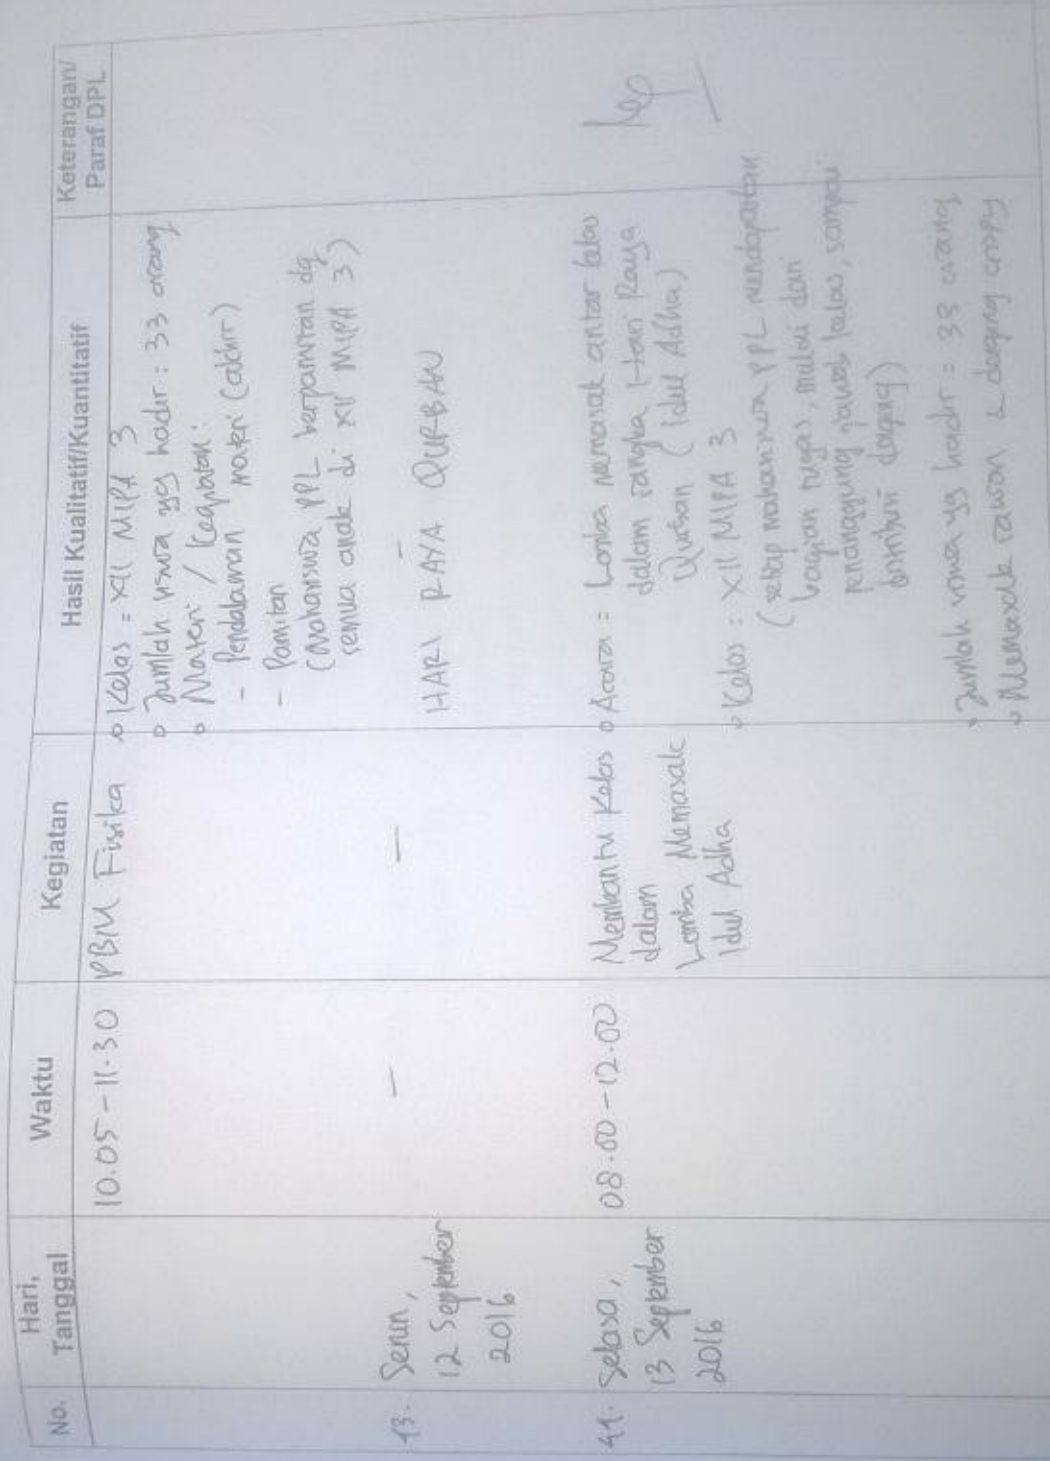 No.
Hari,
Tanggal
Waktu
Kegiatan
Hasil Kualitatif/Kuantitatif
Keterangan/
Paraf DPL
10.05 - 11.30
PBM Fisika
o Kelas = XII MIPA 3
o Jumlah siswa yg hadir : 33 orang
o Materi / Kegiatan :
- Pendalaman materi (akhir)
- Pamitan
(Mahasiswa PPL berpamitan dg
semua anak di XII MIPA 3)
43.
Senin,
12 September
2016
-
-
HARI RAYA QURBAN
44.
Selasa,
13 September
2016
08.00 - 12.00
Membantu Kelas
dalam
Lomba Memasak
Idul Adha
o Acara = Lomba memasak antar kelas
dalam rangka Hari Raya
Qurban (Idul Adha)
o Kelas : XII MIPA 3
(setiap mahasiswa PPL mendapatkan
bagian tugas, mulai dari
penanggung jawab kelas, sampai
distribusi daging)
o Jumlah siswa yg hadir = 33 orang
o Memasak rawon & daging crispy